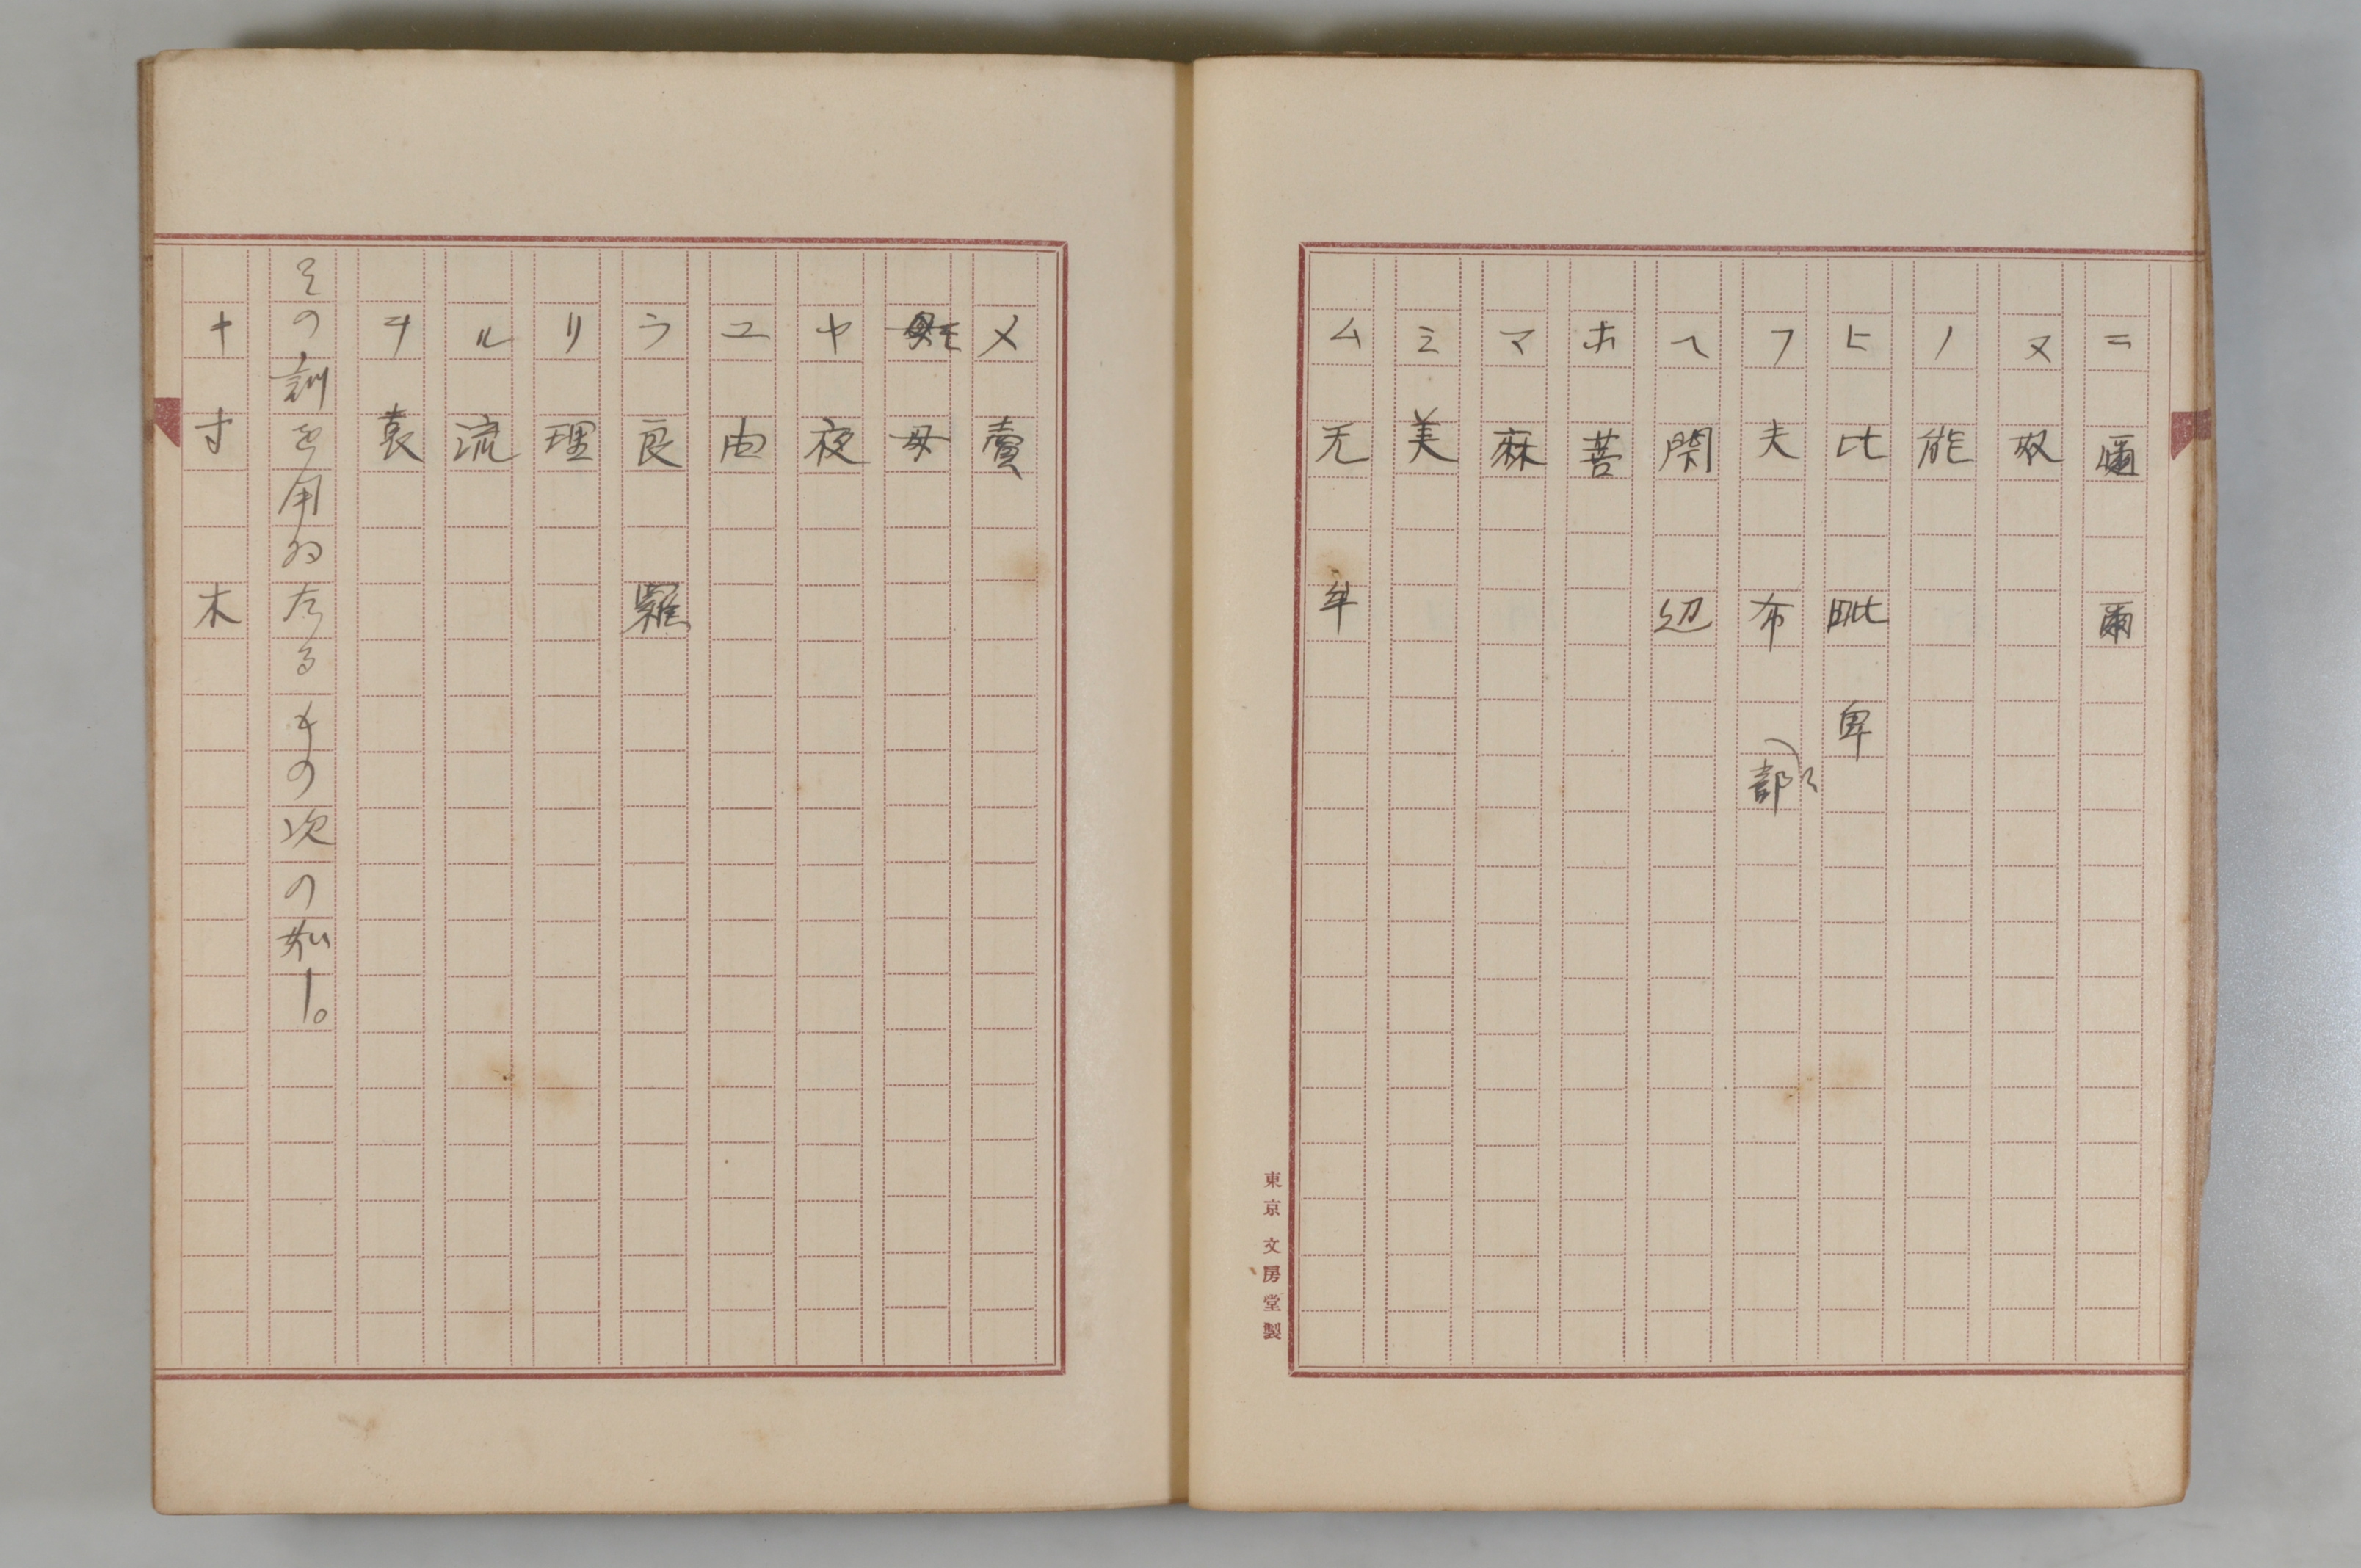 ニ 邇 爾
ヌ 奴
ノ 能
ヒ 比 毗 卑
フ 夫 布 部
ヘ 閇 辺
ホ 菩
マ 麻
ミ 美
ム 无 牟
東京文房堂製
メ 賣
モ 母
ヤ 夜
ユ 由
ラ 良 羅
リ 理
ル 流
ヲ 袁
その訓を用ゐたるもの次の如し。
キ 寸 木